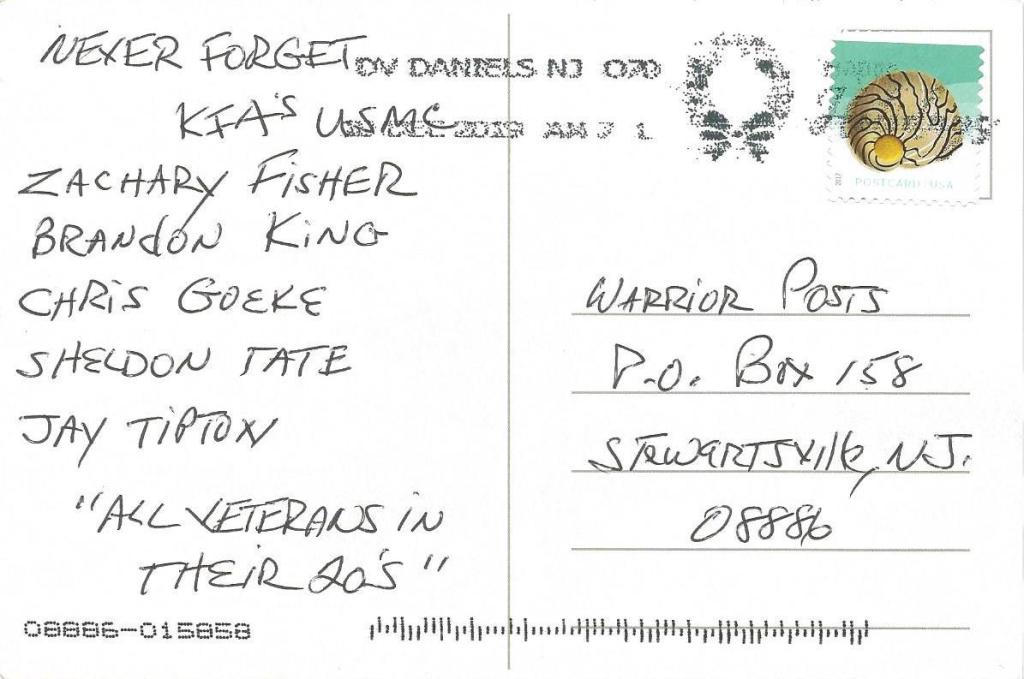 NEVER FORGET
KIA'S USMC
ZACHARY FISHER
BRANDON KING
CHRIS GOEKE
SHELDON TATE
JAY TIPTON
"ALL VETERANS IN
THEIR 20'S"
08886-015858
DV DANIELS NJ 070
2019 AM 7 L
2017
POSTCARD USA
WARRIOR POSTS
P.O. Box 158
STEWARTSVIlle, NJ.
08886